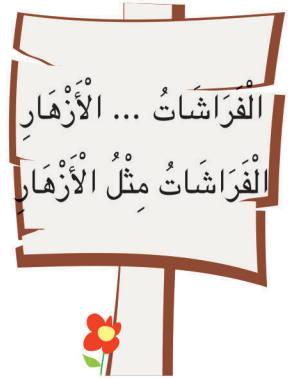 الْفَرَاشَاتُ ... الْأَزْهَارِ
الْفَرَاشَاتُ مِثْلُ الْأَزْهَارِ